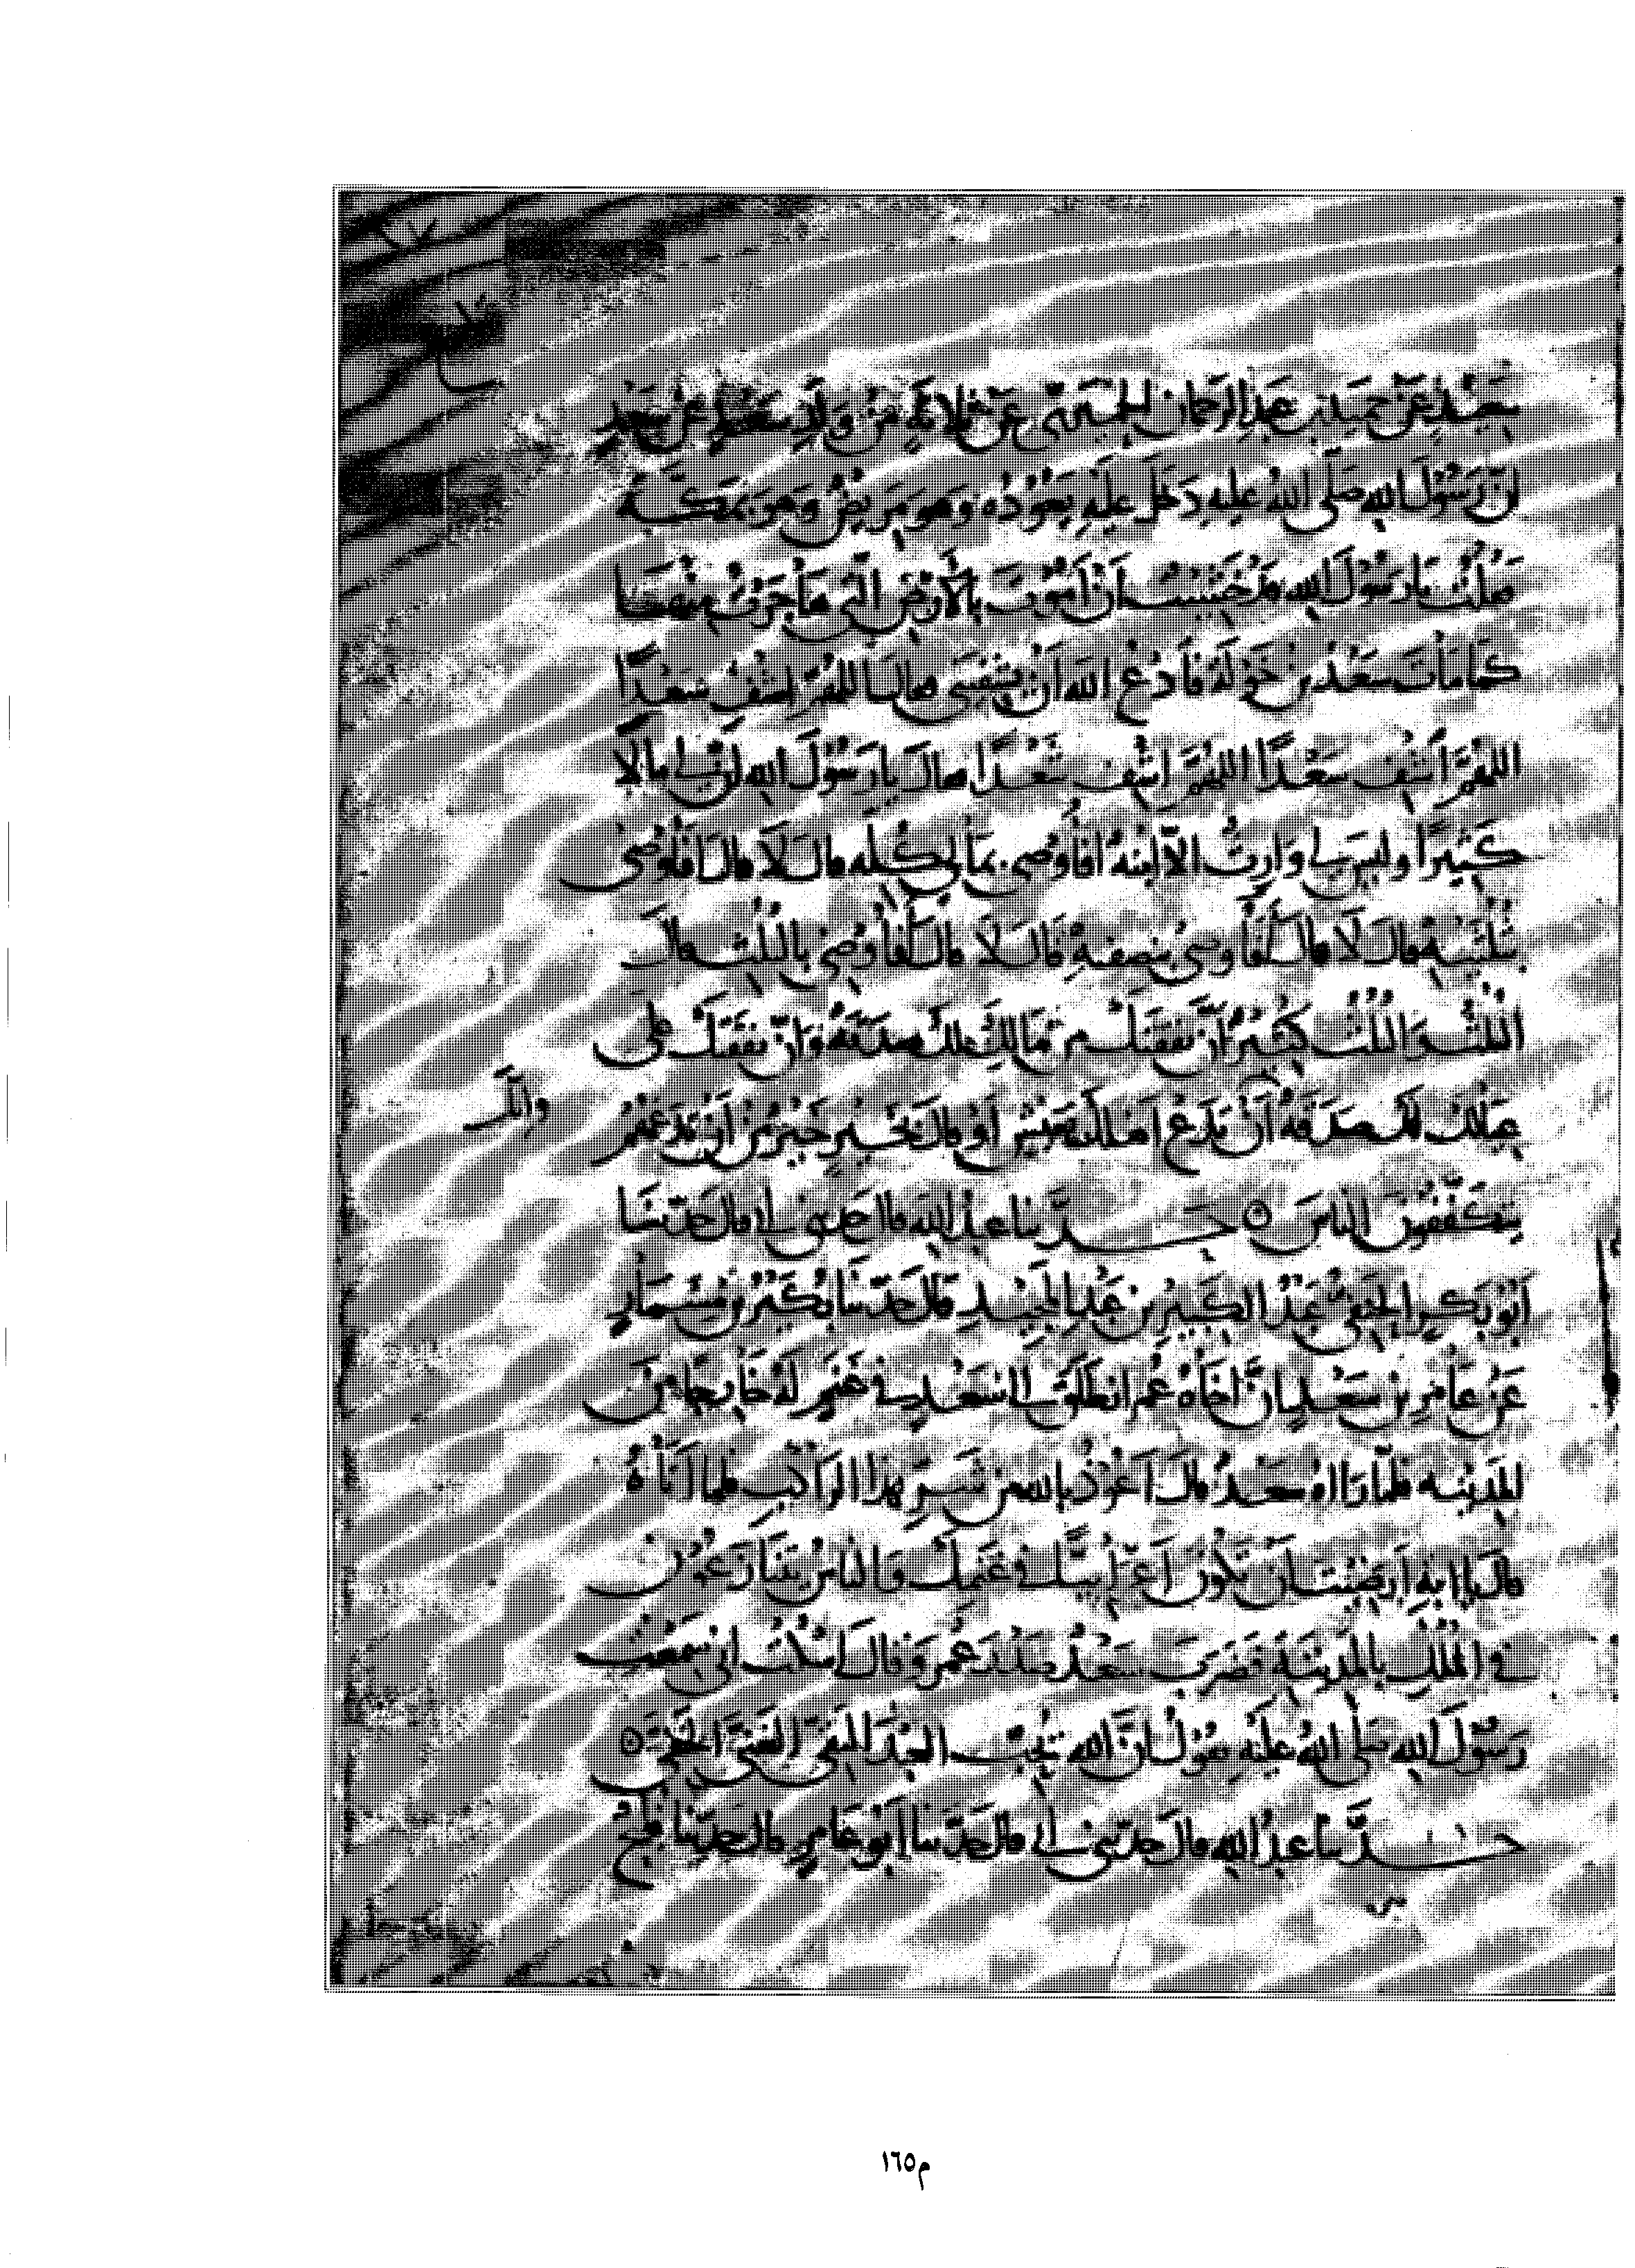 سَعِيدٍ عَنْ حميد بن عبد الرحمان الحميري عَنْ ثلاثةٍ مِنْ وَلَدِ سَعْدٍ عَنْ سَعْدٍ
انّ رَسُوْلَ الله صَلّى اللهُ عليه دَخَلَ عليْهِ يَعُوْدُه وَهو مَريْضٌ وَهوَ بمَكّةَ
فقلتُ يا رَسُوْلَ الله قَدْ خَشِيْتُ اَنْ اَمُوْتَ بالأَرْضِ الّتي هَاجَرْتُ مِنْهَا
كما مَاتَ سَعْدُ بنُ خَوْلَةَ فَادْعُ الله اَنْ يَشْفِيَنِي قال اللهُمَّ اشْفِ سَعْدًا
اللهُمَّ اَشْفِ سَعْدًا اللهُمَّ اشْفِ سَعْدًا فقال يا رَسُوْلَ الله اِنّ لي مالا
كَثِيْرًا وليْسَ لي وَارِثٌ الاّ ابنةٌ افَأُوْصِي بمَالي كُلّه قال لَا قال اَفَأُوصِي
بثُلُثَيْهِ قال لَا قال اَفَأُوصِي بنِصفِهِ قَال لَا قال اَفَأُوصِي بالثُلُثِ قال
الثُلُثُ وَالثُلُثُ كَثِيْرٌ اِنّ نَفَقَتَكَ مِن مَالِكَ لك صَدَقَةٌ وَاِنّ نَفَقَتَكَ على
وَاِنّك
عِيَالِكَ لك صَدَقَةٌ اَنْ تَدَعَ اَهلك بعَيْشٍ اَوْ قالَ بِخَيْرٍ خَيْرٌ مِنْ اَنْ تَدَعَهُمْ
يتكَفّفُوْنَ الناسَ ۞ حدّثنا عبدُ الله قال حدثني ابي قال حدّثنا
اَبُوْ بَكرٍ الحَنَفيُّ عَبْدُ الكَبِيْرِ بنِ عَبْدِ المجِيْدِ قال حدّثنا بُكَيْرُ بنُ مِسْمَارٍ
عَنْ عَامِرِ بنِ سَعْدٍ اَنّ اَخَاهُ عُمَرَ انطَلَقَ الى سَعْدٍ في غَنَمٍ لَهُ خَارِجًا مِنَ
المَدِيْنَه فلمّا رَااهُ سَعْدٌ قال اَعُوْذُ بالله مِنْ شَرِّ هذا الرّاكِبِ فلما اَتَاهُ
قال يا اَبَةِ اَرَضِيْتَ اَنْ تكُوْنَ اَعْرَابِيًّا في غَنَمِكَ وَالناسُ يَتنَازَعُوْنَ
في المُلْكِ بالمَدِيْنَةِ فَضَرَبَ سَعْدٌ صَدْرَ عُمَرَ وَقالَ اسْكُتْ اني سَمِعْتُ
رَسُوْلَ الله صَلى اللهُ عليْهِ يقُوْلُ اِنَّ الله يُحِبُّ العَبْدَ التّقِيَّ الغَنِيَّ الخَفِيَّ ۞
حدَّثنا عبدُ الله قال حدثني ابي قال حدّثنا اَبُو عَامِرٍ قال حدّثنا فُلَيْحٌ
م١٦٥